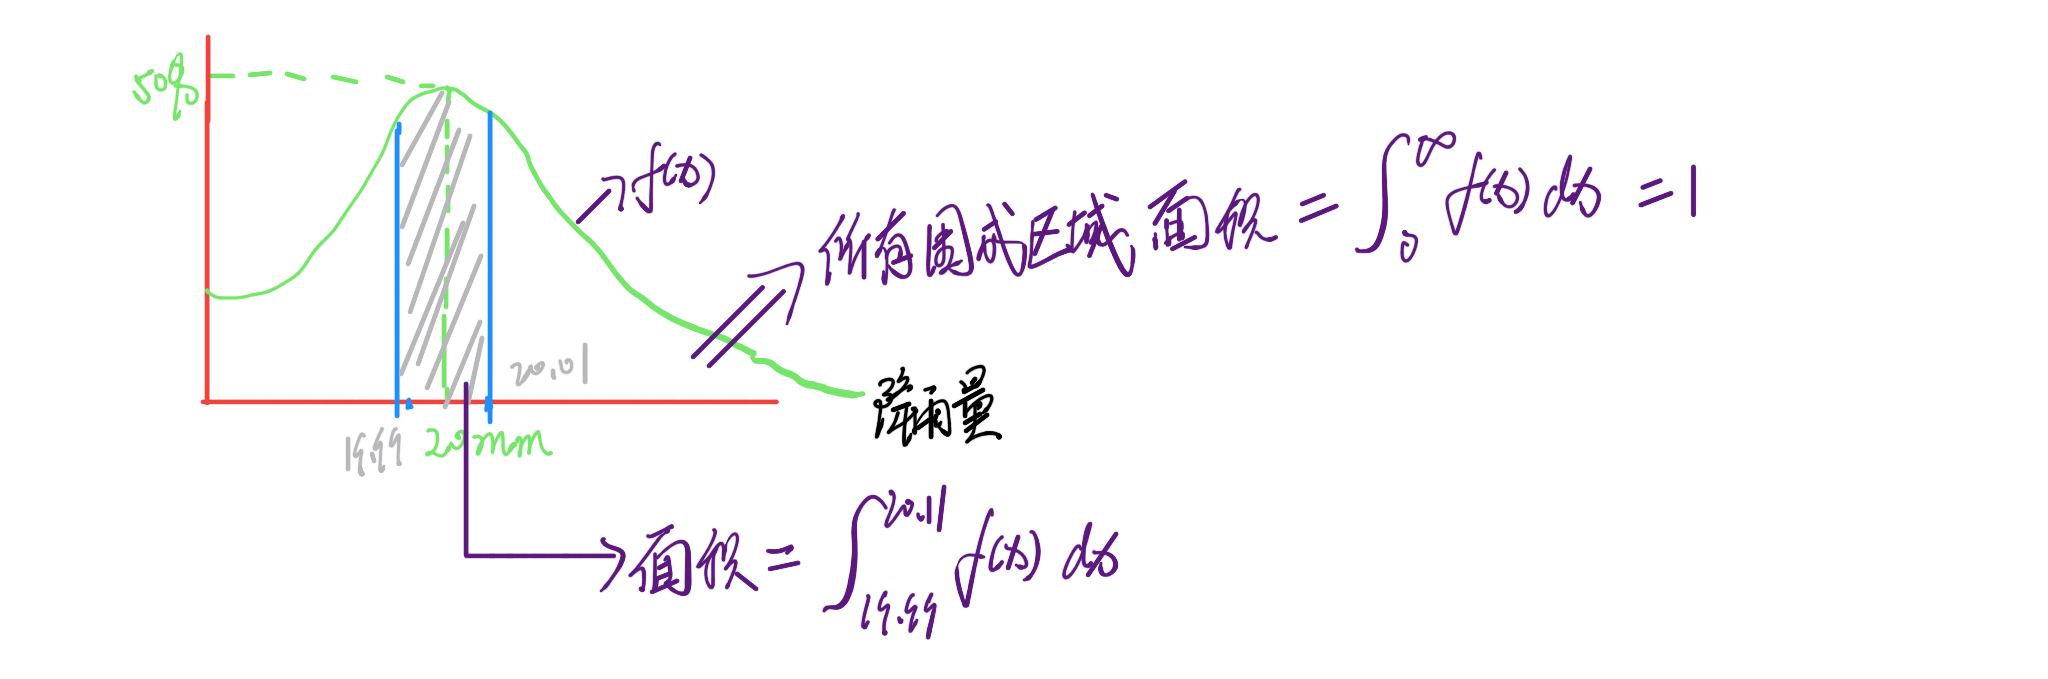 50%
f(x)
所有围成区域面积 = ∫₀^∞ f(x) dx = 1
20.01
降雨量
19.99 20mm
面积 = ∫₁₉.₉₉^20.11 f(x) dx